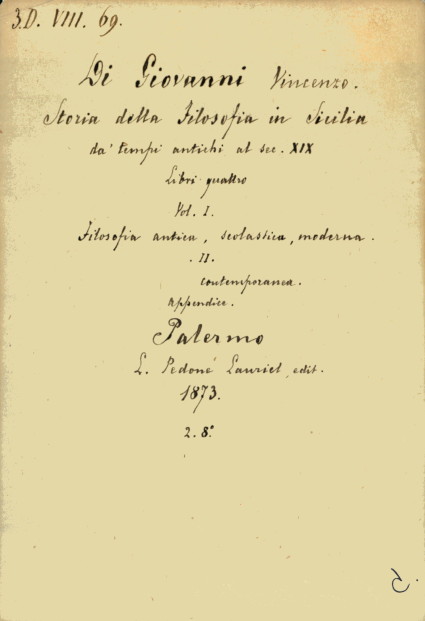 3.D. VIII. 69.
Di Giovanni Vincenzo.
Storia della Filosofia in Sicilia
da' tempi antichi al sec. XIX
Libri quattro
Vol. I.
Filosofia antica, scolastica, moderna.
. II.
contemporanea.
Appendice.
Palermo
L. Pedone Lauriel, edit.
1873.
2. 8.°